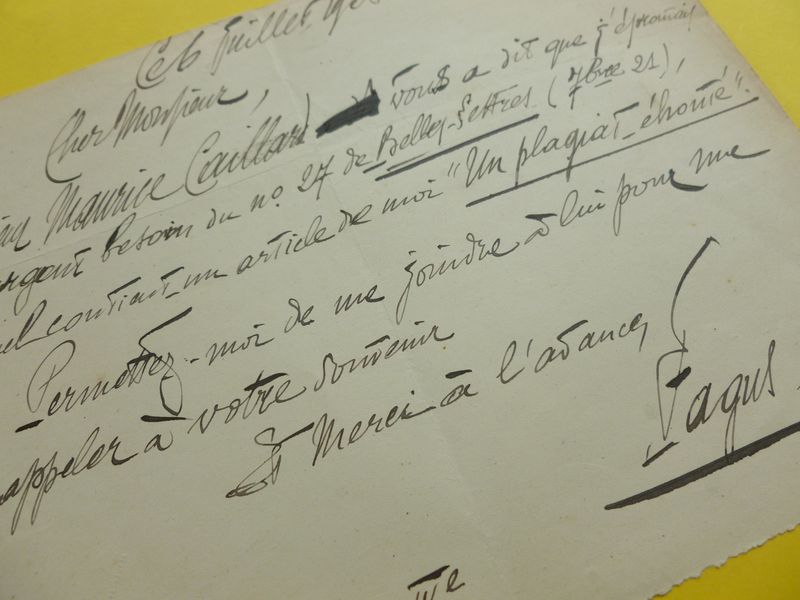 Ce 6 Juillet 19
Cher Monsieur,
Maurice Caillard vous a dit que j'éprouvais
urgent besoin du no. 27 de Belles-Lettres (7bre 21),
contient un article de moi "Un plagiat éhonté".
Permettez-moi de me joindre à lui pour me
rappeler à votre souvenir
Et Merci à l'avance,
Fagus
IIIe